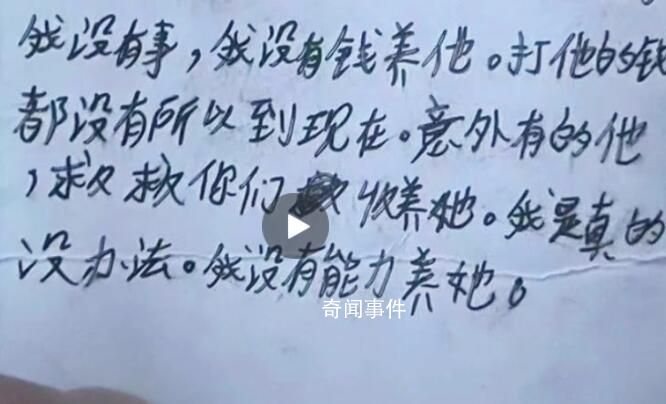 我没有事，我没有钱养他。打他的钱
都没有所以到现在。意外有的他
，求求你们收养她。我是真的
没办法。我没有能力养她。
奇闻事件